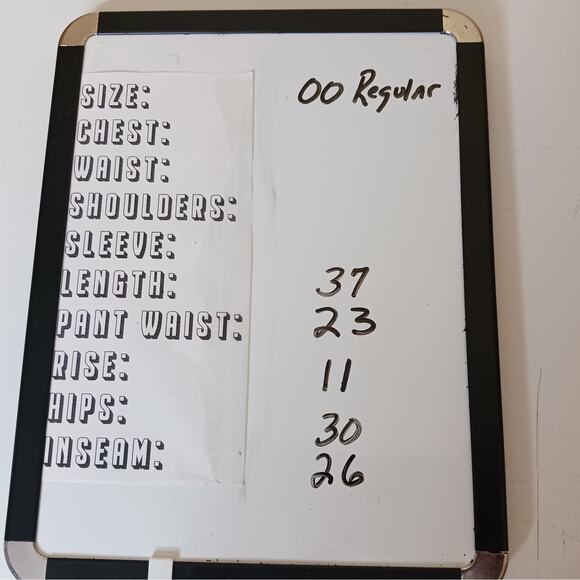 SIZE: 00 Regular
CHEST:
WAIST:
SHOULDERS:
SLEEVE:
LENGTH: 37
PANT WAIST: 23
RISE: 11
HIPS: 30
INSEAM: 26